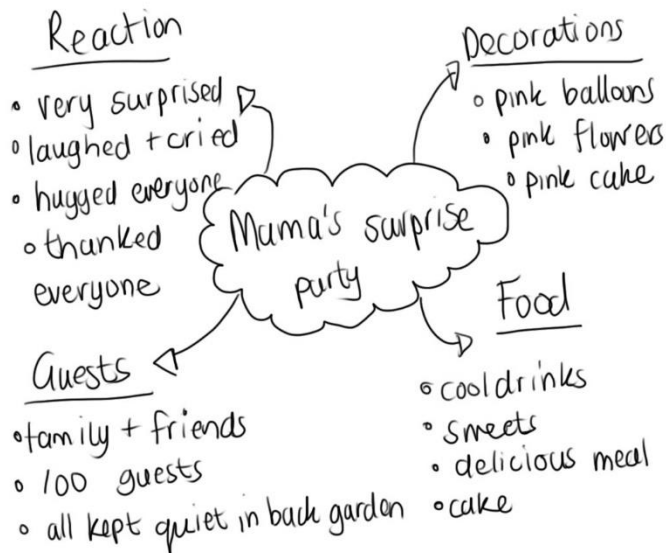 Reaction
• very surprised
• laughed + cried
• hugged everyone
• thanked
everyone
Decorations
• pink balloons
• pink flowers
• pink cake
Mama's surprise
party
Guests
• family + friends
• 100 guests
• all kept quiet in back garden
Food
• cooldrinks
• sweets
• delicious meal
• cake